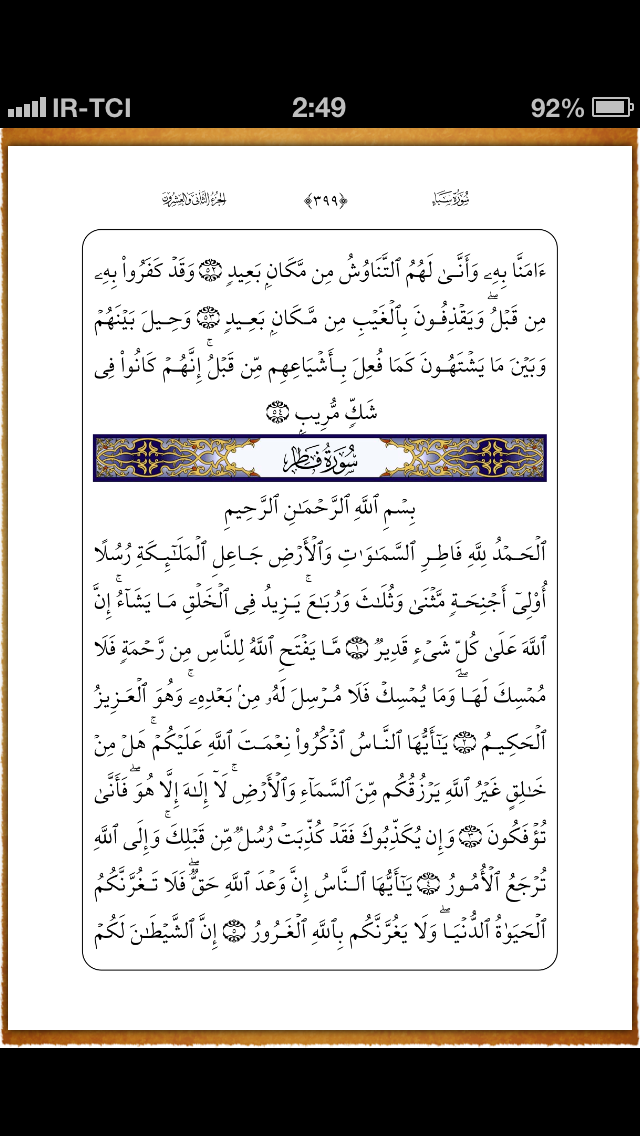 IR-TCI 2:49 92%
سُورَةُ سَبَإٍ ﴿٣٩٩﴾ الجُزءُ الثَّانِي وَالعِشرُونَ
ءَامَنَّا بِهِۦ وَأَنَّىٰ لَهُمُ ٱلتَّنَاوُشُ مِن مَّكَانٍۭ بَعِيدٍ ٥٢ وَقَدۡ كَفَرُواْ بِهِۦ
مِن قَبۡلُۖ وَيَقۡذِفُونَ بِٱلۡغَيۡبِ مِن مَّكَانٍۭ بَعِيدٍ ٥٣ وَحِيلَ بَيۡنَهُمۡ
وَبَيۡنَ مَا يَشۡتَهُونَ كَمَا فُعِلَ بِأَشۡيَاعِهِم مِّن قَبۡلُۚ إِنَّهُمۡ كَانُواْ فِي
شَكّٖ مُّرِيبِۭ ٥٤
سُورَةُ فَاطِرٍ
بِسۡمِ ٱللَّهِ ٱلرَّحۡمَٰنِ ٱلرَّحِيمِ
ٱلۡحَمۡدُ لِلَّهِ فَاطِرِ ٱلسَّمَٰوَٰتِ وَٱلۡأَرۡضِ جَاعِلِ ٱلۡمَلَٰٓئِكَةِ رُسُلًا
أُوْلِيٓ أَجۡنِحَةٖ مَّثۡنَىٰ وَثُلَٰثَ وَرُبَٰعَۚ يَزِيدُ فِي ٱلۡخَلۡقِ مَا يَشَآءُۚ إِنَّ
ٱللَّهَ عَلَىٰ كُلِّ شَيۡءٖ قَدِيرٞ ١ مَّا يَفۡتَحِ ٱللَّهُ لِلنَّاسِ مِن رَّحۡمَةٖ فَلَا
مُمۡسِكَ لَهَاۖ وَمَا يُمۡسِكۡ فَلَا مُرۡسِلَ لَهُۥ مِنۢ بَعۡدِهِۦۚ وَهُوَ ٱلۡعَزِيزُ
ٱلۡحَكِيمُ ٢ يَٰٓأَيُّهَا ٱلنَّاسُ ٱذۡكُرُواْ نِعۡمَتَ ٱللَّهِ عَلَيۡكُمۡۚ هَلۡ مِنۡ
خَٰلِقٍ غَيۡرُ ٱللَّهِ يَرۡزُقُكُم مِّنَ ٱلسَّمَآءِ وَٱلۡأَرۡضِۚ لَآ إِلَٰهَ إِلَّا هُوَۖ فَأَنَّىٰ
تُؤۡفَكُونَ ٣ وَإِن يُكَذِّبُوكَ فَقَدۡ كُذِّبَتۡ رُسُلٞ مِّن قَبۡلِكَۚ وَإِلَى ٱللَّهِ
تُرۡجَعُ ٱلۡأُمُورُ ٤ يَٰٓأَيُّهَا ٱلنَّاسُ إِنَّ وَعۡدَ ٱللَّهِ حَقّٞۖ فَلَا تَغُرَّنَّكُمُ
ٱلۡحَيَوٰةُ ٱلدُّنۡيَاۖ وَلَا يَغُرَّنَّكُم بِٱللَّهِ ٱلۡغَرُورُ ٥ إِنَّ ٱلشَّيۡطَٰنَ لَكُمۡ